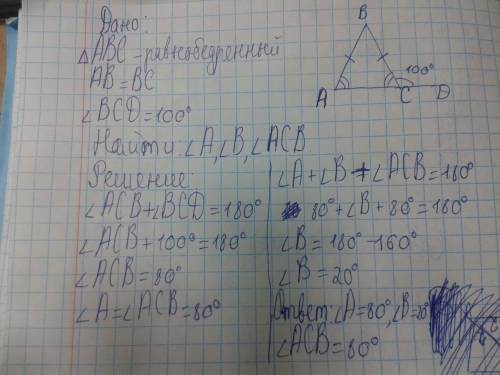 Дано:
△ABC - равнобедренный
AB = BC
∠BCD = 100°
Найти: ∠A, ∠B, ∠ACB
Решение
∠ACB + ∠BCD = 180°
∠ACB + 100° = 180°
∠ACB = 80°
∠A = ∠ACB = 80°
B
100°
A C D
∠A + ∠B + ∠ACB = 180°
80° + ∠B + 80° = 180°
∠B = 180° - 160°
∠B = 20°
Ответ: ∠A = 80°, ∠B = 20°
∠ACB = 80°